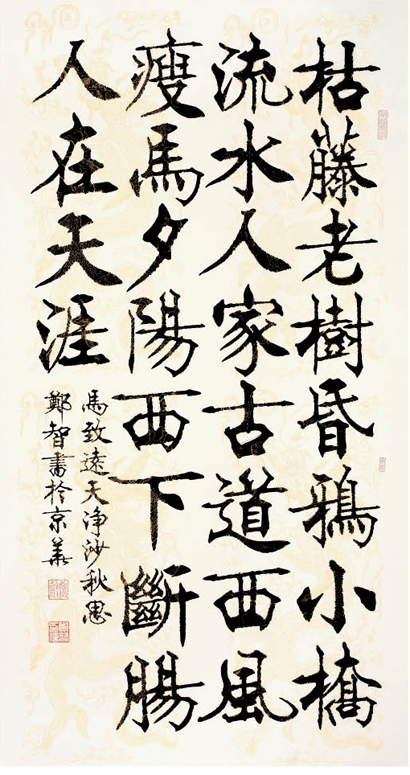 枯藤老樹昏鴉小橋
流水人家古道西風
瘦馬夕陽西下斷腸
人在天涯
馬致遠天淨沙秋思
鄭智書於京華